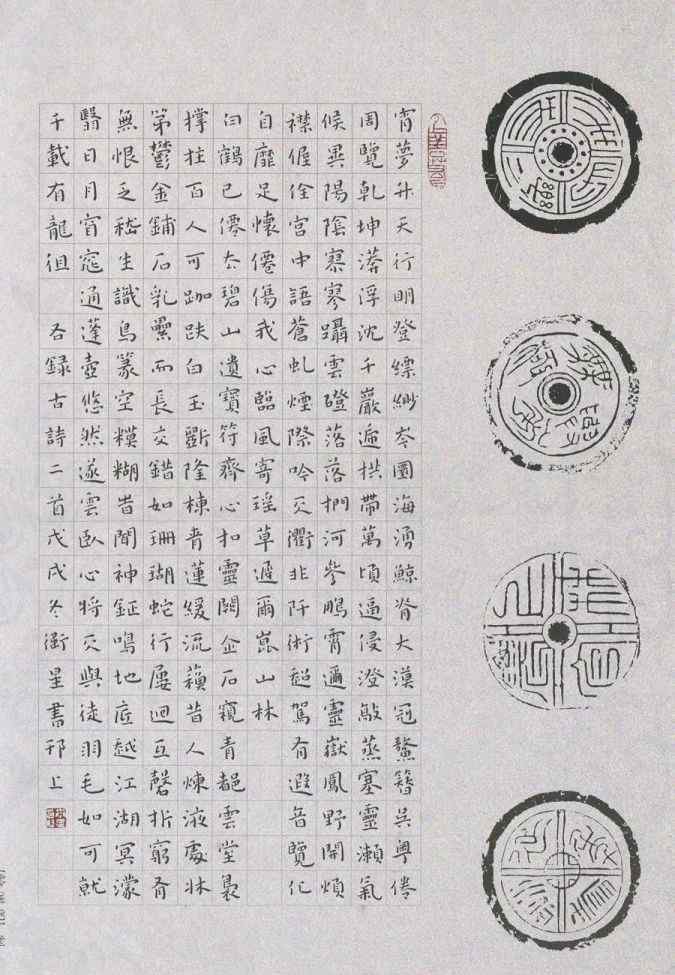 宵夢升天行明登縹緲岑圜海湧鯨脊大漠冠鰲簪吳粵倦
周覽乾坤漭浮沈千巖遍拱帶萬頃逼侵澄敲蒸塞靈瀨氣
候異陽陰寒躡雲磴落落捫河參鵬霄邇靈嶽鳳野開煩
襟偓佺宮中語蒼虬煙際吟天衢非阡術超駕有遐音覽化
自靡足懷僊傷我心臨風寄瑤草遲爾崑山林
曰鶴已僊去碧山遺寶符齋心扣靈關企石窺青都雲堂裊
撐拄百人可跏趺白玉斲隆棟青蓮綴流蘇昔人煉液處牀
第鬱金鋪石乳纍而長交錯如珊瑚蛇行屢迴互磬折窮脊
無恨乏嵇生識鳥篆空模糊昔聞神鉦鳴地底越江湖冥濛
翳日月窅窱通蓬壺悠然遂雲臥心將天與徒羽毛如可就
千載有龍徂 右錄古詩二首戊戌冬衛星書邗上